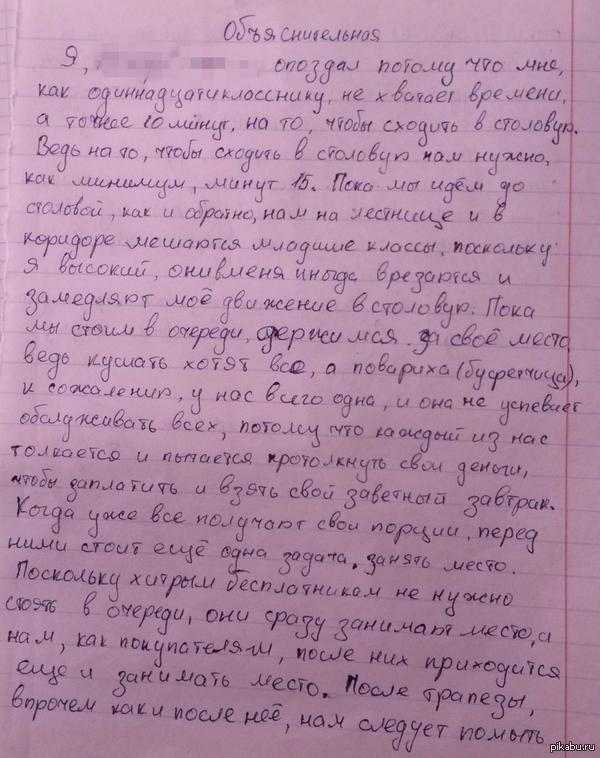 Объяснительная
Я, опоздал потому что мне,
как одиннадцатикласснику, не хватает времени,
а точнее 10 минут, на то, чтобы сходить в столовую.
Ведь на то, чтобы сходить в столовую нам нужно,
как минимум, минут 15. Пока мы идём до
столовой, как и обратно, нам на лестнице и в
коридоре мешаются младшие классы, поскольку
я высокий, они в меня иногда врезаются и
замедляют моё движение в столовую. Пока
мы стоим в очереди, держимся за своё место
ведь кушать хотят все, а повариха (буфетчица),
к сожалению, у нас всего одна, и она не успевает
обслуживать всех, потому что каждый из нас
толкается и пытается протолкнуть свои деньги,
чтобы заплатить и взять свой заветный завтрак.
Когда уже все получают свои порции, перед
ними стоит ещё одна задача. занять место.
Поскольку хитрым бесплатникам не нужно
стоять в очереди, они сразу занимают место, а
нам, как покупателям, после них приходится
еще и занимать место. После трапезы,
впрочем как и после неё, нам следует помыть
pikabu.ru